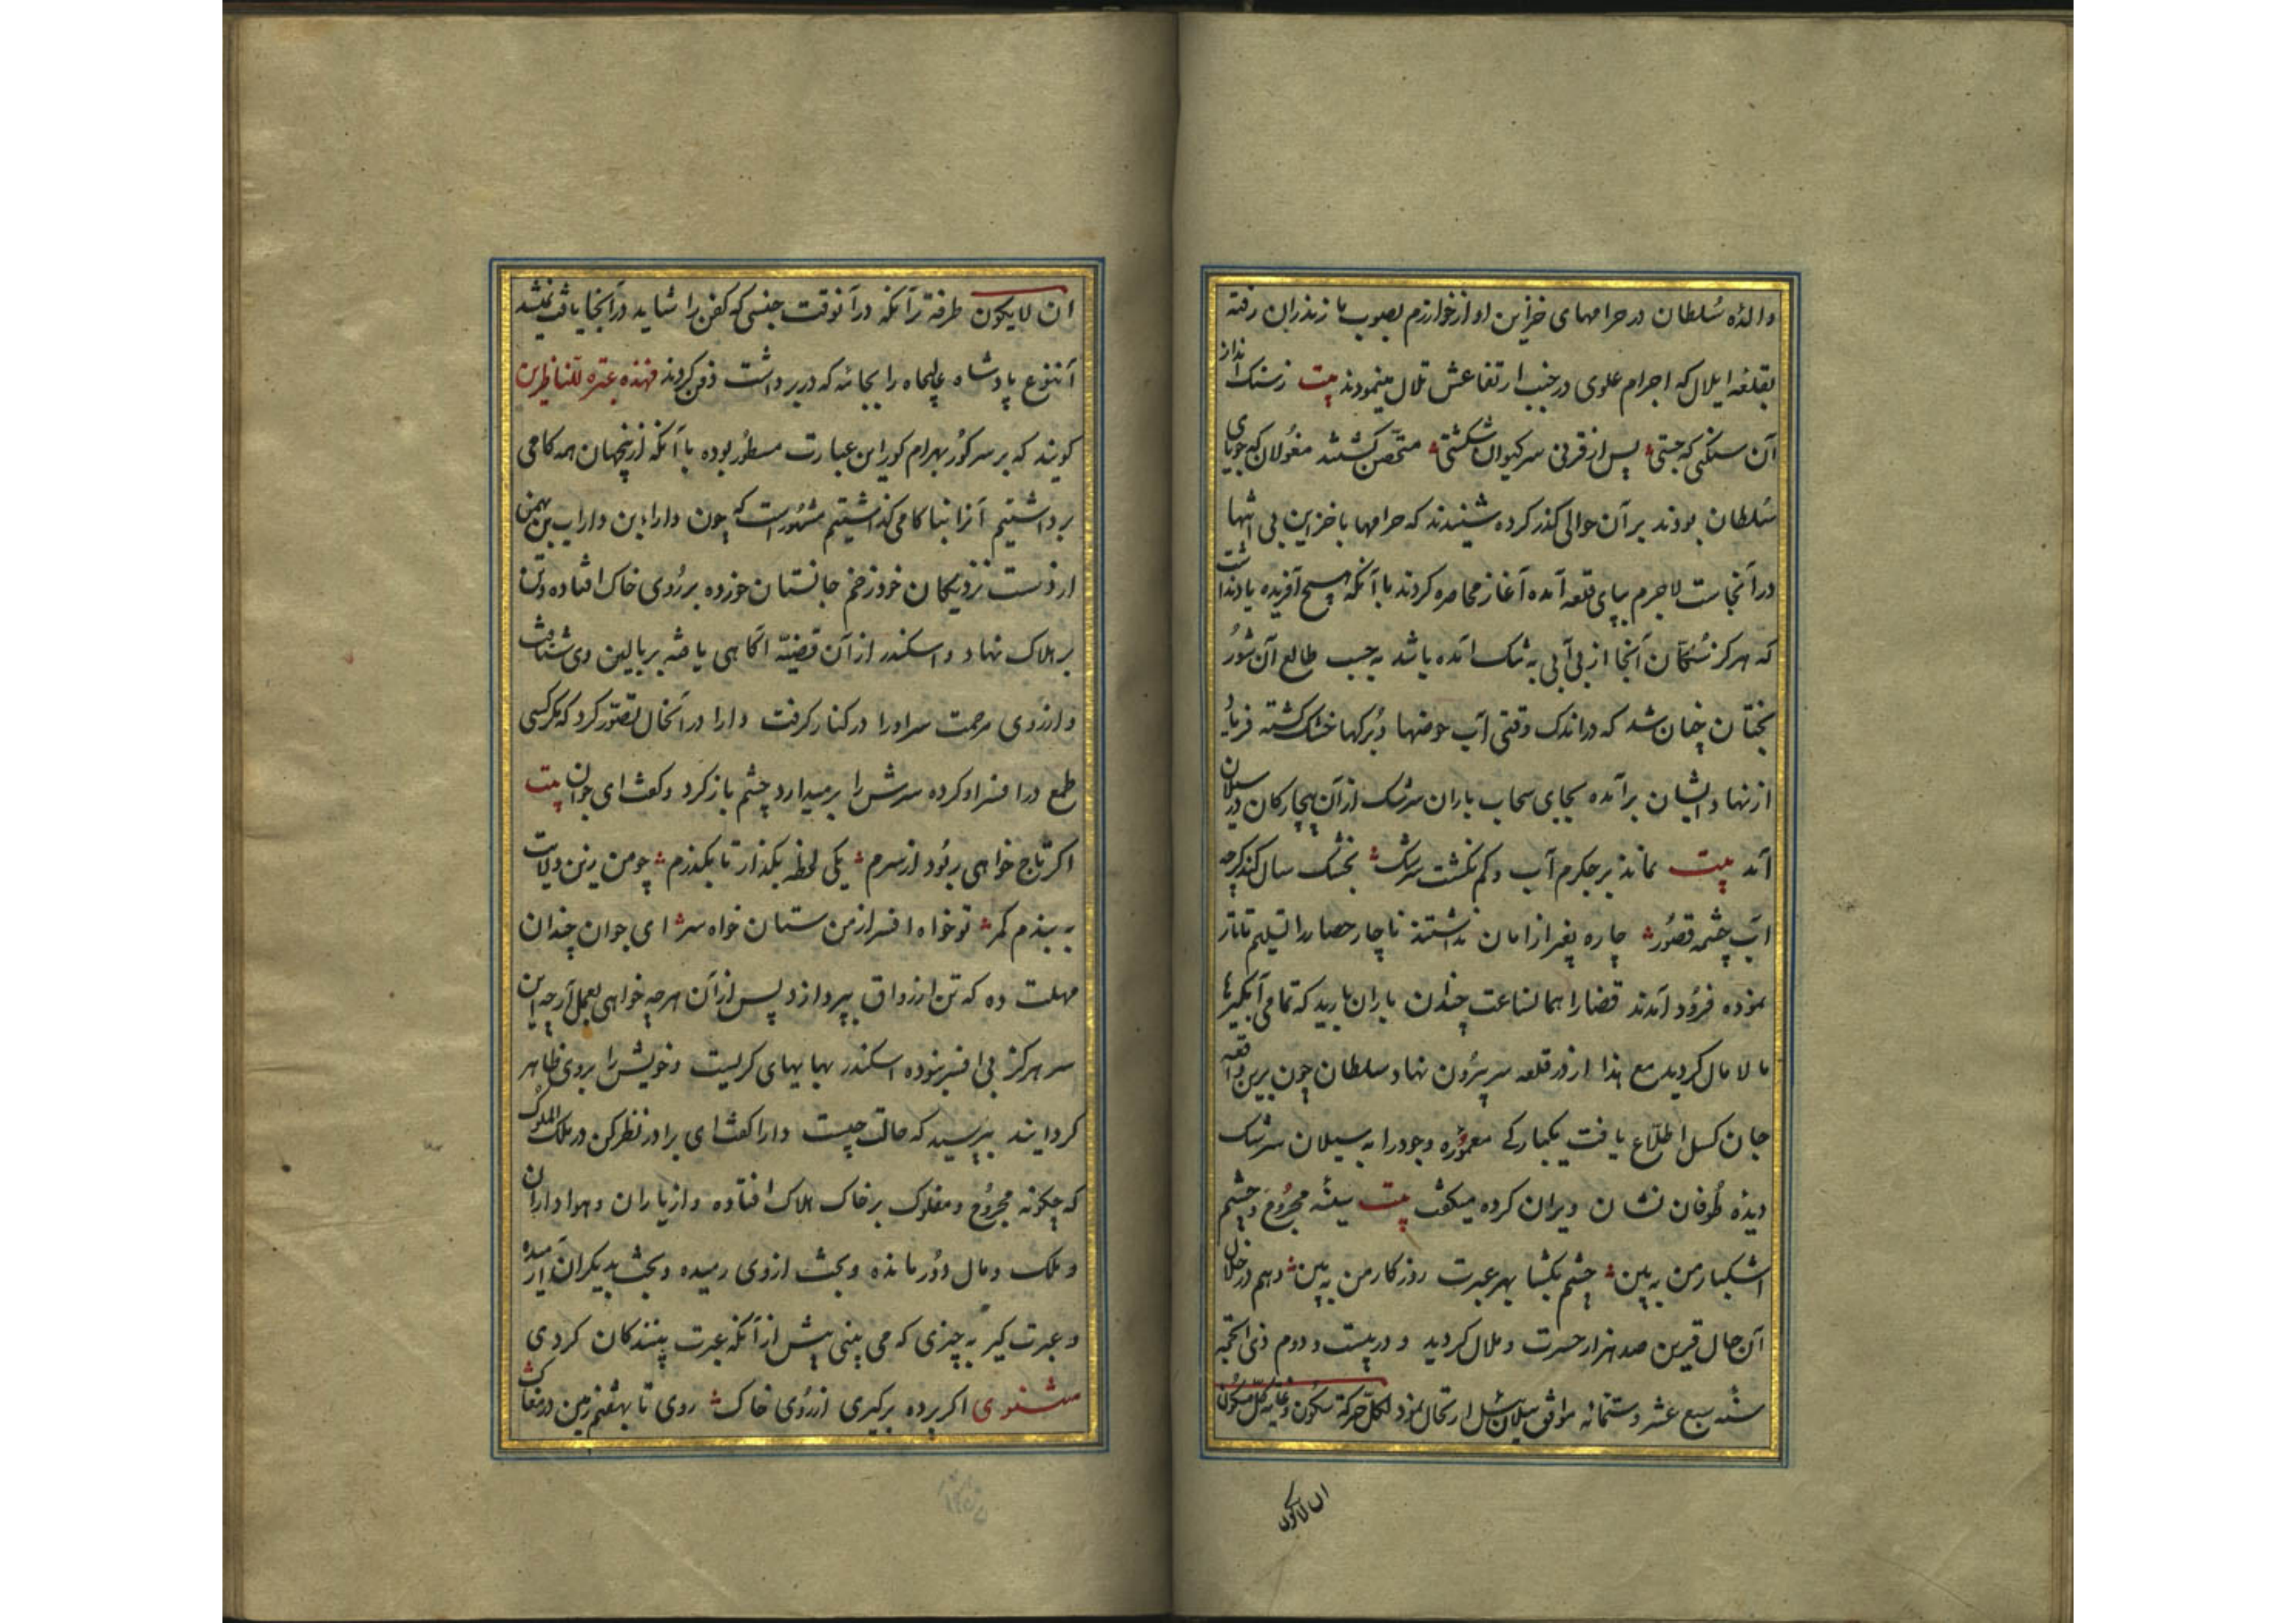 والدهٔ سلطان در حرامهای خزاین او از خوارزم بصوب مازندران رفته
بقلعه ایلال که اجرام علوی در جنب ارتفاعش تلال مینمودند بیت ز سنک انداز
آن سنکی که جستی پس از قرنی سر کیوان شکستی متحصن کشتند مغولان که جویای
سلطان بودند بر آن حوالی کذر کرده شنیدند که حرامها با خزاین بی انتها
در آنجاست لاجرم بپای قلعه آمده آغاز محاصره کردند با آنکه هیچ آفریده یاد نداشت
که هرکز سکان آنجا از بی آبی به تنک آمده باشد به حسب طالع آن شور
بختان چنان شد که در اندک وقتی آب حوضها و برکها خشک کشته فریاد
از نهاد ایشان برآمده بجای سحاب باران سرشک از آن بیچارکان در سیلان
آمد بیت نماند بر جکرم آب و کم نکشت سرشک بخشک سال کند کرچه
آب چشمه قصور چاره بغیر از امان نداشتند ناچار حصار را تسلیم تاتار
نموده فرود آمدند قضا را همانساعت چندان باران بارید که تمامی آبکیرها
مالامال کردید مع هذا از در قلعه سر بیرون نهاد و سلطان چون برین واقعه
جان کسل اطلاع یافت یکبارکی معموره وجود را به سیلان سرشک
دیده طوفان نشان ویران کرده میکفت بیت سینه مجروح و چشم
اشکبار من به بین چشم بکشا بهر عبرت روزکار من به بین و هم در خلال
آن حال قرین صد هزار حسرت و ملال کردید و در بیست و دوم ذی الحجه
سنه سبع عشر و ستمائه موافق ییلان ئیل ارتحال نمود لکل حرکة سکون و غایة کل مکون
ان لایکون
ان لایکون طرفه تر آنکه در آنوقت جنسی که کفن را شاید در آنجا یافت نمیشد
آننوع پادشاه عالیجاه را بجامه که در بر داشت دفن کردند فهذه عبرة للناظرین
کویند که بر سر کور بهرام کور این عبارت مسطور بوده با آنکه از ینجهان همه کامی
برداشتیم آنرا بناکامی کذاشتیم مشهور است که چون داراء بن داراب بن بهمن
از دست نزدیکان خود زخم جانستان خورده بر روی خاک افتاده و تن
بر هلاک نهاد و اسکندر از آن قضیه آکاهی یافته بر بالین وی شتافت
و از روی مرحمت سر او را در کنار کرفت دارا در آنحال تصور کرد که مکر کسی
طمع در افسر او کرده سرش را بر میدارد چشم باز کرد و کفت ای جوان بیت
اکر تاج خواهی ربود از سرم یکی لحظه بکذار تا بکذرم چو من زین ولایت
به بندم کمر تو خواه افسر از من ستان خواه سر ای جوان چندان
مهلت ده که تن از رواق بپردازد پس از آن هر چه خواهی بعمل آر چه این
سر هرکز بی افسر نبوده اسکندر بهایهای کریست و خویش را بر وی ظاهر
کردانید بپرسید که حالت چیست دارا کفت ای برادر نظر کن در ملک الملوک
که چکونه مجروح و مفلوک بر خاک هلاک افتاده و از یاران و هواداران
و ملک و مال دور مانده و بخت از وی رمیده و بدیکران آرمیده
و عبرت کیر به چیزی که می بینی پیش از آنکه عبرت بینندکان کردی
مثنوی اکر پرده برکیری از روی خاک روی تا بهفتم زمین در مغاک